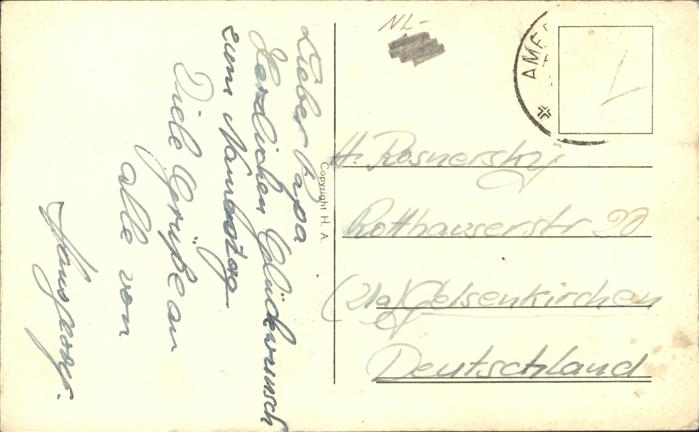 Lieber Papa
Herzlichen Glückwunsch
zum Namenstag
Viele Grüße an
alle von
NL-
AME
Copyright H. A.
H. Rosnersky
Rotthauserstr 20
(21a) Gelsenkirchen
Deutschland